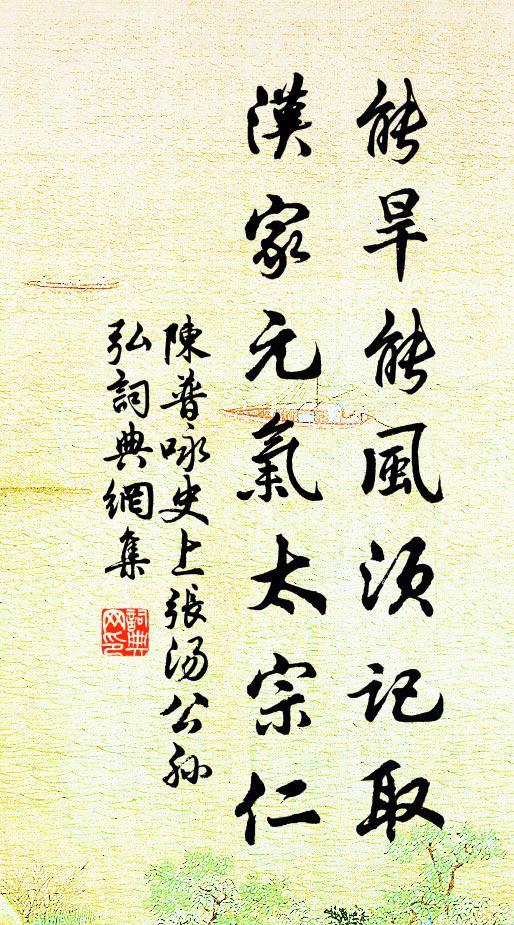 能旱能風須記取
漢家元氣太宗仁
陳普咏史上張湯公孫
弘詞典網集
詞典
网印